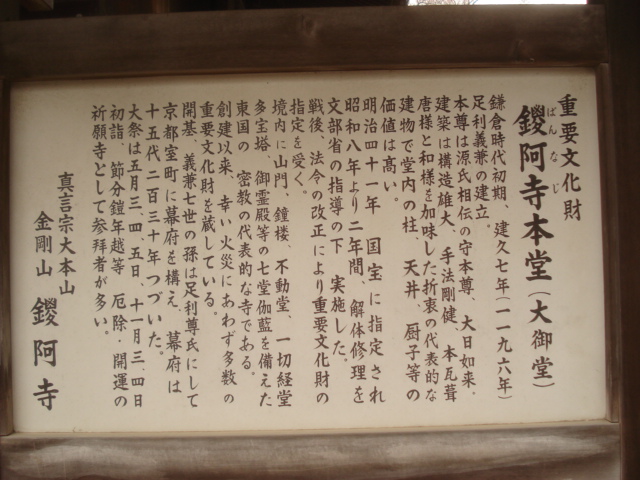 重要文化財
ばんなじ
鑁阿寺本堂（大御堂）
鎌倉時代初期、建久七年（一一九六年）
足利義兼の建立。
本尊は源氏相伝の守本尊、大日如来．
建築は構造雄大、手法剛健、本瓦葺
唐様と和様を加味した折衷の代表的な
建物で堂内の柱、天井、厨子等の
価値は高い。
明治四十一年　国宝に指定され
昭和八年より二年間、解体修理を
文部省の指導の下　実施した。
戦後、法令の改正により重要文化財の
指定を受く。
境内に山門、鐘楼、不動堂、一切経堂
多宝塔、御霊殿等の七堂伽藍を備えた
東国の　密教の代表的な寺である。
創建以来、幸い火災にあわず多数の
重要文化財を蔵している。
開基、義兼七世の孫は足利尊氏にして
京都室町に幕府を構え　幕府は
十五代二百三十年つづいた。
大祭は五月三、四、五日、十一月三、四日
初詣、節分鎧年越等　厄除・開運の
祈願寺として参拜者が多い。
真言宗大本山
金剛山　鑁阿寺